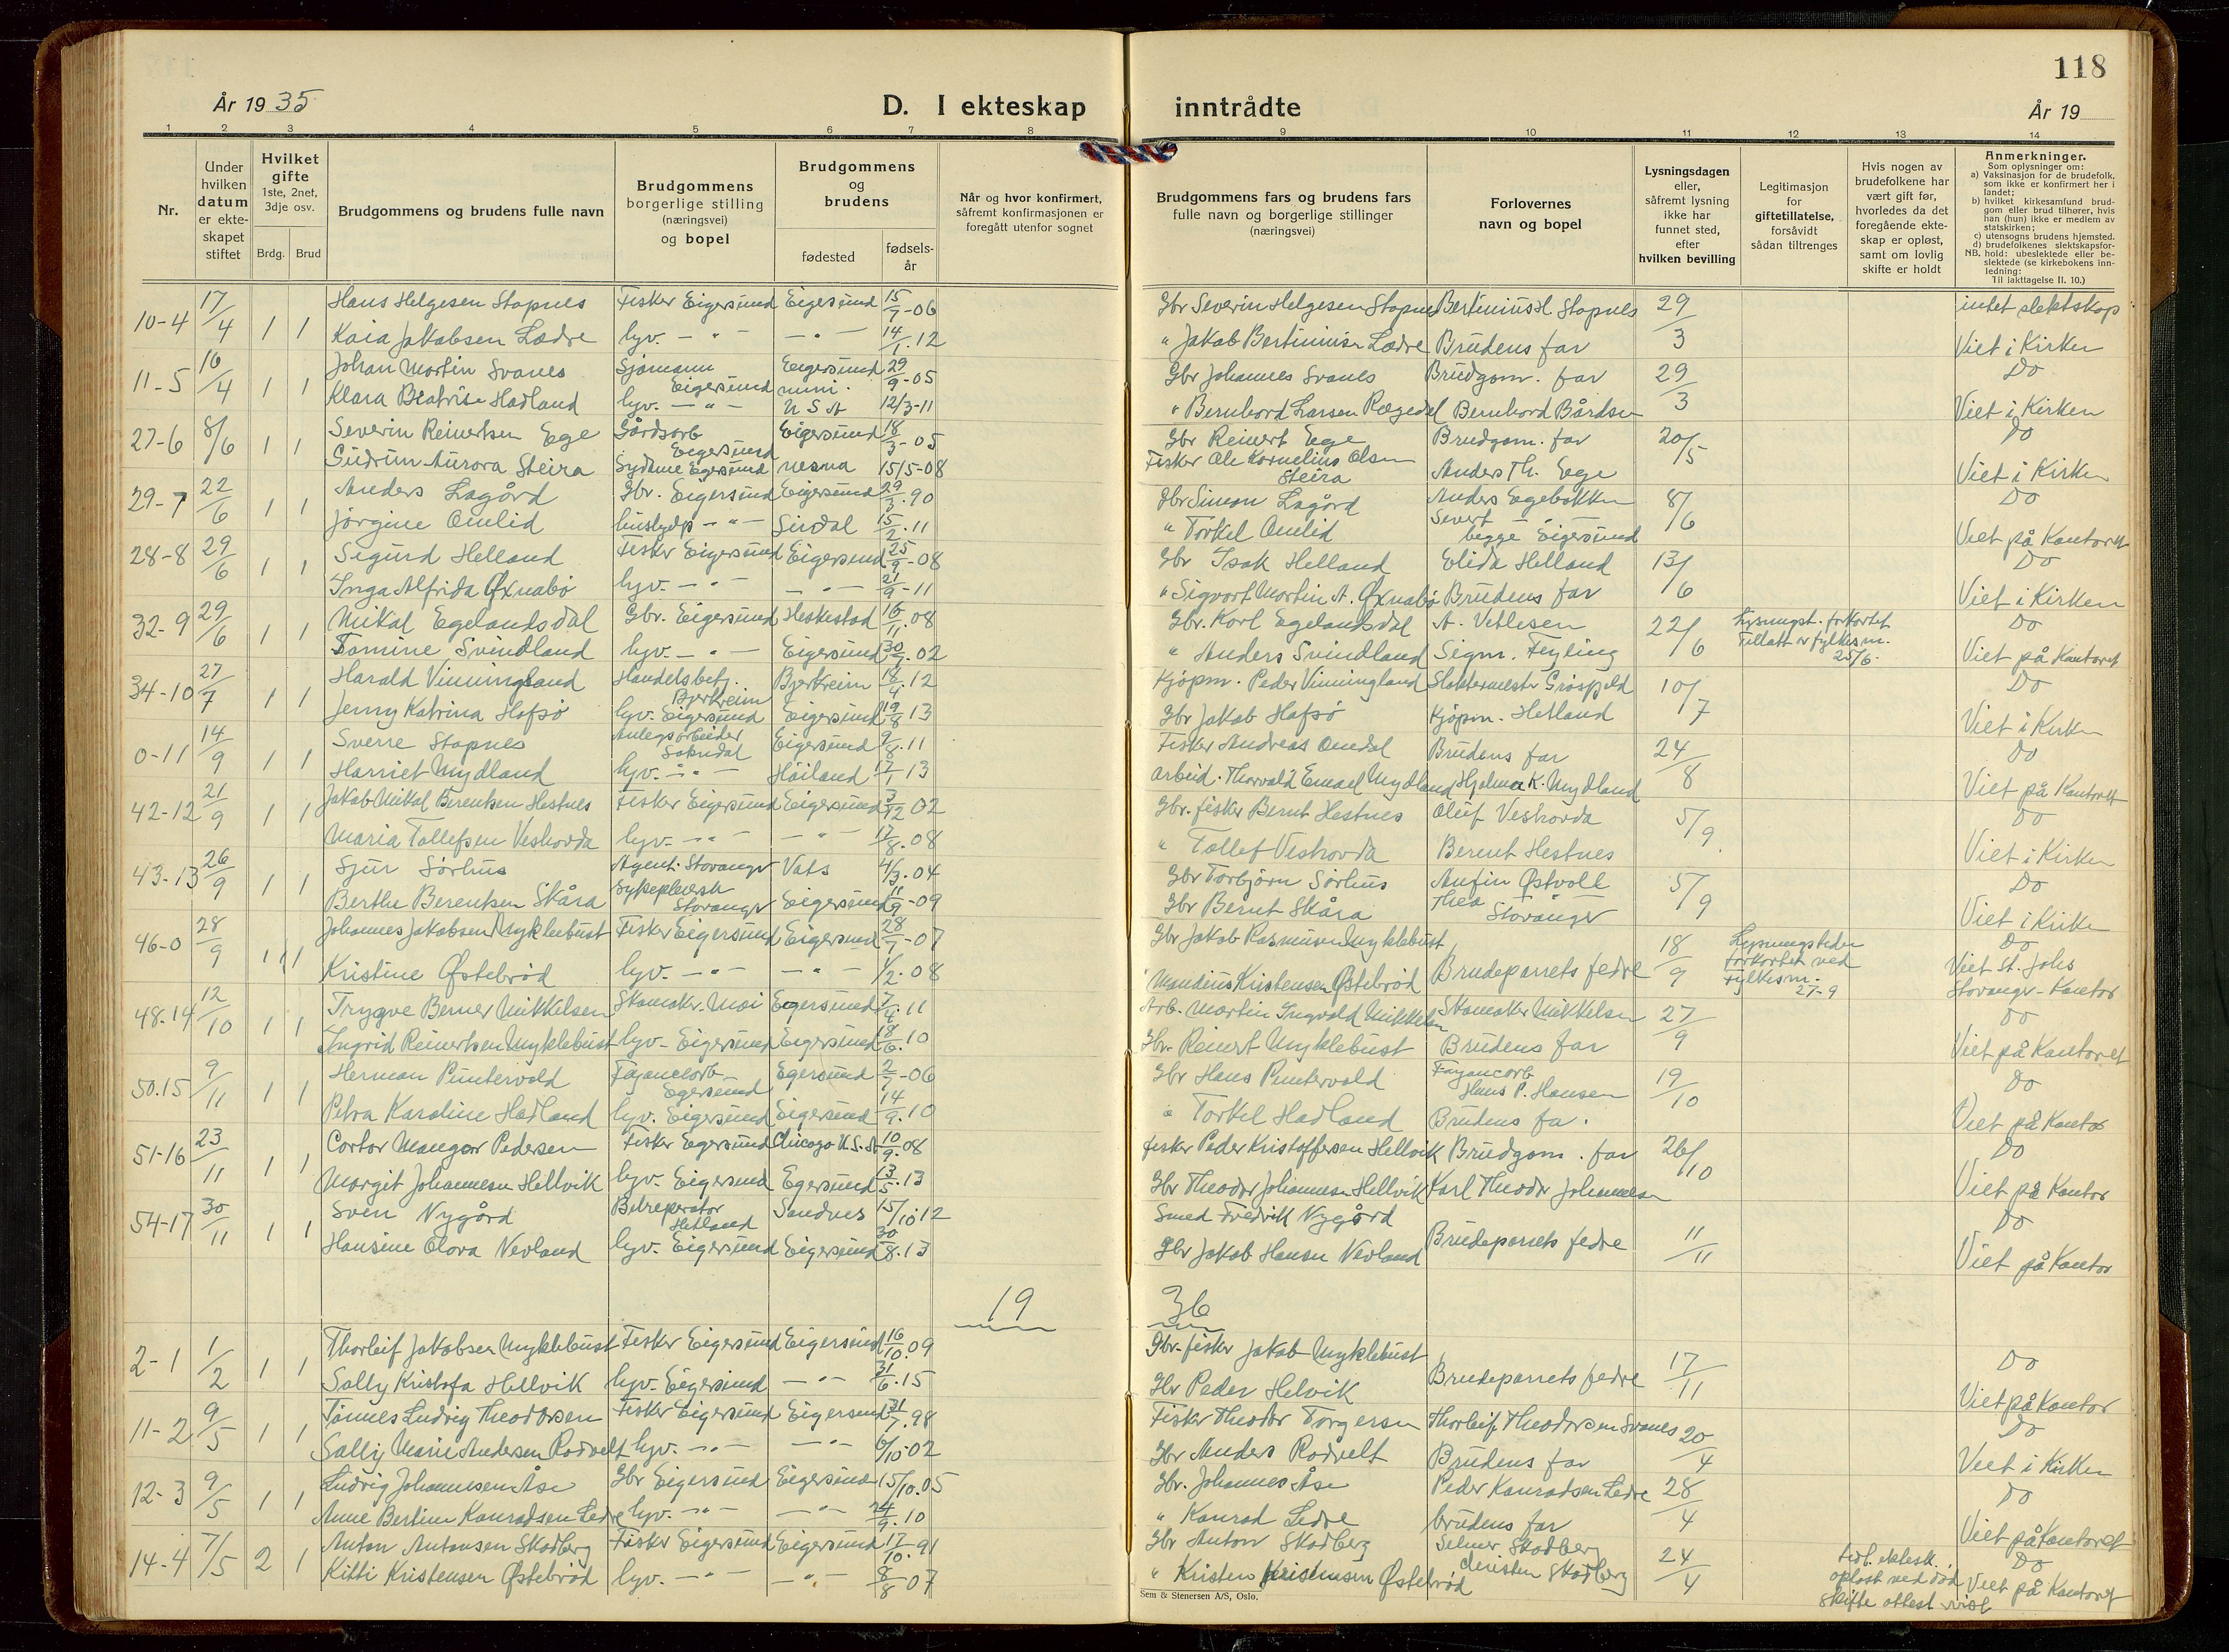 118
År 19 35
D. I ekteskap inntrådte
År 19
1 2 3 4 5 6 7 8 9 10 11 12 13 14
Nr.
Under hvilken datum er ekteskapet stiftet
Hvilket gifte 1ste, 2net, 3dje osv.
Brdg. Brud
Brudgommens og brudens fulle navn
Brudgommens borgerlige stilling (næringsvei) og bopel
Brudgommens og brudens
fødested
fødsels-år
Når og hvor konfirmert, såfremt konfirmasjonen er foregått utenfor sognet
Brudgommens fars og brudens fars fulle navn og borgerlige stillinger (næringsvei)
Forlovernes navn og bopel
Lysningsdagen eller, såfremt lysning ikke har funnet sted, efter hvilken bevilling
Legitimasjon for giftetillatelse, forsåvidt sådan tiltrenges
Hvis nogen av brudefolkene har vært gift før, hvorledes da det foregående ekteskap er opløst, samt om lovlig skifte er holdt
Anmerkninger.
Som oplysninger om:
a) Vaksinasjon for de brudefolk, som ikke er konfirmert her i landet;
b) hvilket kirkesamfund brudgom eller brud tilhører, hvis han (hun) ikke er medlem av statskirken;
c) utensogns brudens hjemsted.
d) brudefolkenes slektskapsforhold: ubeslektede eller beslektede (se kirkebokens innledning:
NB.
Til iakttagelse II. 10.)
10-4 17/4 1 1 Hans Helgesen Stapnes Fisker Eigersund Eigersund 15/7-06 Gbr Severin Helgesen Stapnes Bertinius H. Stapnes 29/3 intet slektskap
Kaia Jakobsen Lædre hyv. - " - - " - 14/1.12 " Jakob Bertinius Lædre Brudens far Viet i Kirken
11-5 16/4 1 1 Johan Martin Svanes Sjømann Eigersund Eigersund 29/9-05 Gbr Johannes Svanes Brudgom. far 29/3 Do
Klara Beatrise Hadland hyv. - " - U S A 12/3-11 " Bernhard Larsen Rægedal Bernhard Bårdsen Viet i Kirken
27-6 8/6 1 1 Severin Reinertsen Ege Gårdsarb Eigersund Eigersund 18/3-05 Gbr Reinert Ege Brudgom. far 20/5 Do
Gudrun Aurora Steira Sydame Egersund Nesna 15/5-08 Fisker Ole Kornelius Olsen Steira Anders Th. Ege Viet i Kirken
29-7 22/6 1 1 Anders Lagård Gbr. Eigersund Eigersund 29/3.90 Gbr Simon Lagård Anders Egebakken 8/6 Do
Jørgine Omlid hushjelp - " - Sirdal 15/2.11 " Torkel Omlid Severt - " - begge Eigersund Viet på Kontoret
28-8 29/6 1 1 Sigurd Helland Fisker Eigersund Eigersund 25/9-08 Gbr Isak Helland Elida Helland 13/6 Do
Inga Alfrida Øxnabø hyv. - " - - " - 21/9-11 " Sigvart Martin A. Øxnabø Brudens far Viet i Kirken
32-9 29/6 1 1 Mikal Egelandsdal Gbr. Eigersund Heskestad 16/11.08 Gbr. Karl Egelandsdal A. Vetlesen 22/6 Lysningst. forkortet Tillatt av fylkesm. 25/6. Do
Tomine Svindland hyv. - " - Eigersund 30/7.02 " Anders Svindland Sigm. Feyling Viet på Kontoret
34-10 27/7 1 1 Harald Vinningland Handelsbetj. Bjerkreim Bjerkreim 18/4.12 Kjøpm. Peder Vinningland Slaktermester Grøsfjeld 10/7 Do
Jenny Katrina Hafsø hyv. Eigersund Eigersund 19/8 13 Gbr Jakob Hafsø Kjøpm. Hetland Viet i Kirken
0-11 14/9 1 1 Sverre Stapnes Anlegsarbeider Sokndal Eigersund 9/8.11 Fisker Andreas Omdal Brudens far 24/8 Do
Harriet Mydland hyv. - " - Høiland 17/1 13 Arbeid. Thorvald Emael Mydland Hjelmer K. Mydland Viet på Kontoret
42-12 21/9 1 1 Jakob Mikal Berentsen Hestnes Fisker Eigersund Eigersund 3/12 02 Gbr. fisker Bernt Hestnes Oluf Veshovda 5/9 Do
Maria Tollefsen Veshovda hyv. - " - - " - 17/8.08 " Tollef Veshovda Berent Hestnes Viet i Kirken
43-13 26/9 1 1 Sjur Sørhus Agent. Stavanger Vats 4/3.04 Gbr Torbjørn Sørhus Anfin Østvoll 5/9 Do
Berthe Berentsen Skåra Sykepleiersk Stavanger Eigersund 11/9-09 Gbr Bernt Skåra Thea - " - Stavanger Viet i Kirken
46-0 28/9 1 1 1 Johannes Jakobsen Myklebust Fisker Eigersund Eigersund 28/7-07 Gbr Jakob Rasmusen Myklebust Brudeparrets fedre 18/9 Lysningstiden forkortet ved Fylkesm. 27-9 Do
Kristine Østebrød hyv. - " - - " - 1/2.08 " Mandius Kristensen Østebrød Viet St. Johs Stavanger-Kontor
48.14 12/10 1 1 Trygve Berner Mikkelsen Skomaker. Moi Egersund 7/4.11 Arb. Martin Ingvald Mikkelsen Skomaker Mikkelsen 27/9 Do
Ingrid Reinertsen Myklebust hyv. Eigersund Eigersund 18/6.10 Gbr. Reinert Myklebust Brudens far Viet på Kontoret
50.15 9/11 1 1 Herman Puntervold Fajancearb Egersund Egersund 2/7-06 Gbr Hans Puntervold Fajancarb Hans P. Hansen 19/10 Do
Petra Karoline Hadland hyv. Eigersund Eigersund 14/9.10 " Torkel Hadland Brudens fa. Viet på Kontor
51-16 23/11 1 1 Cortor Mangor Pedersen Fisker Egersund Chicago U.S.A 10/9.08 Fisker Peder Kristoffersen Hellvik Brudgom. far 26/10 Do
Margit Johannesen Hellvik hyv. Eigersund Egersund 13/5.13 Gbr Theodor Johannesen Hellvik Karl Theodor Johannesen Viet på Kontor
54-17 30/11 1 1 Sven Nygård Bilreperatør Hetland Sandnes 15/10.12 Smed Fredrik Nygård Brudeparrets fedre 11/11 Do
Hansine Olava Nevland hyv. Eigersund Eigersund 30/8.13 Gbr Jakob Hansen Nevland Viet på Kontor
19 36
2-1 1/2 1 1 Thorleif Jakobsen Myklebust Fisker Eigersund Eigersund 16/10.09 Gbr-fisker Jakob Myklebust Brudeparrets fedre 17/11 Do
Sally Kristofa Hellvik hyv. Eigersund - " - 21/6.15 Gbr Peder Helvik Viet på Kontor
11-2 9/5 1 1 Tønnes Ludvig Theodorsen Fisker Eigersund Eigersund 31/7.98 Fisker Theodor Torgersen Thorleif Theodorsen Svanes 20/4 Do
Sally Marie Andersen Rodvelt hyv. - " - - " - 6/10-02 Gbr Anders Rodvelt Brudens far Viet i Kirken
12-3 9/5 1 1 Ludvig Johannesen Åse Gbr Eigersund Eigersund 15/10.05 Gbr. Johannes Åse Peder Konradsen Ledre 28/4 Do
Anne Bertine Konradsen Ledre hyv. - " - - " - 24/9.10 " Konrad Ledre brudens far Viet på Kontoret
14-4 7/5 2 1 Anton Antonsen Skadberg Fisker Eigersund Eigersund 17/10.91 Gbr Anton Skadberg Selmer Skadberg 24/4 tidl. ektesk. opløst ved død Skifte attest vist Do
Kitti Kristensen Østebrød hyv. - " - - " - 8/8 07 " Kristen Kristensen Østebrød Christen Skadberg Viet på Kontoret
Sem & Stenersen A/S, Oslo.